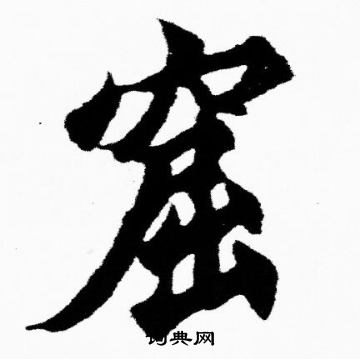 窟
词典网